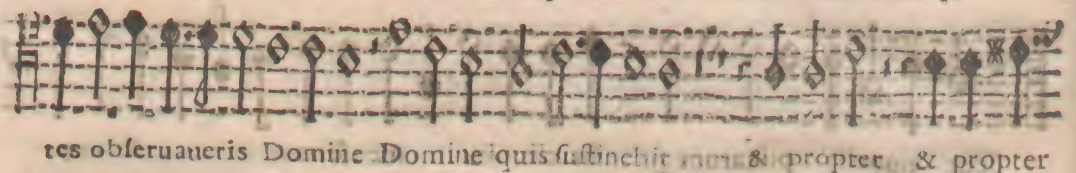 tes obſeruaueris Domine Domine quis ſuſtinebit & propter & propter